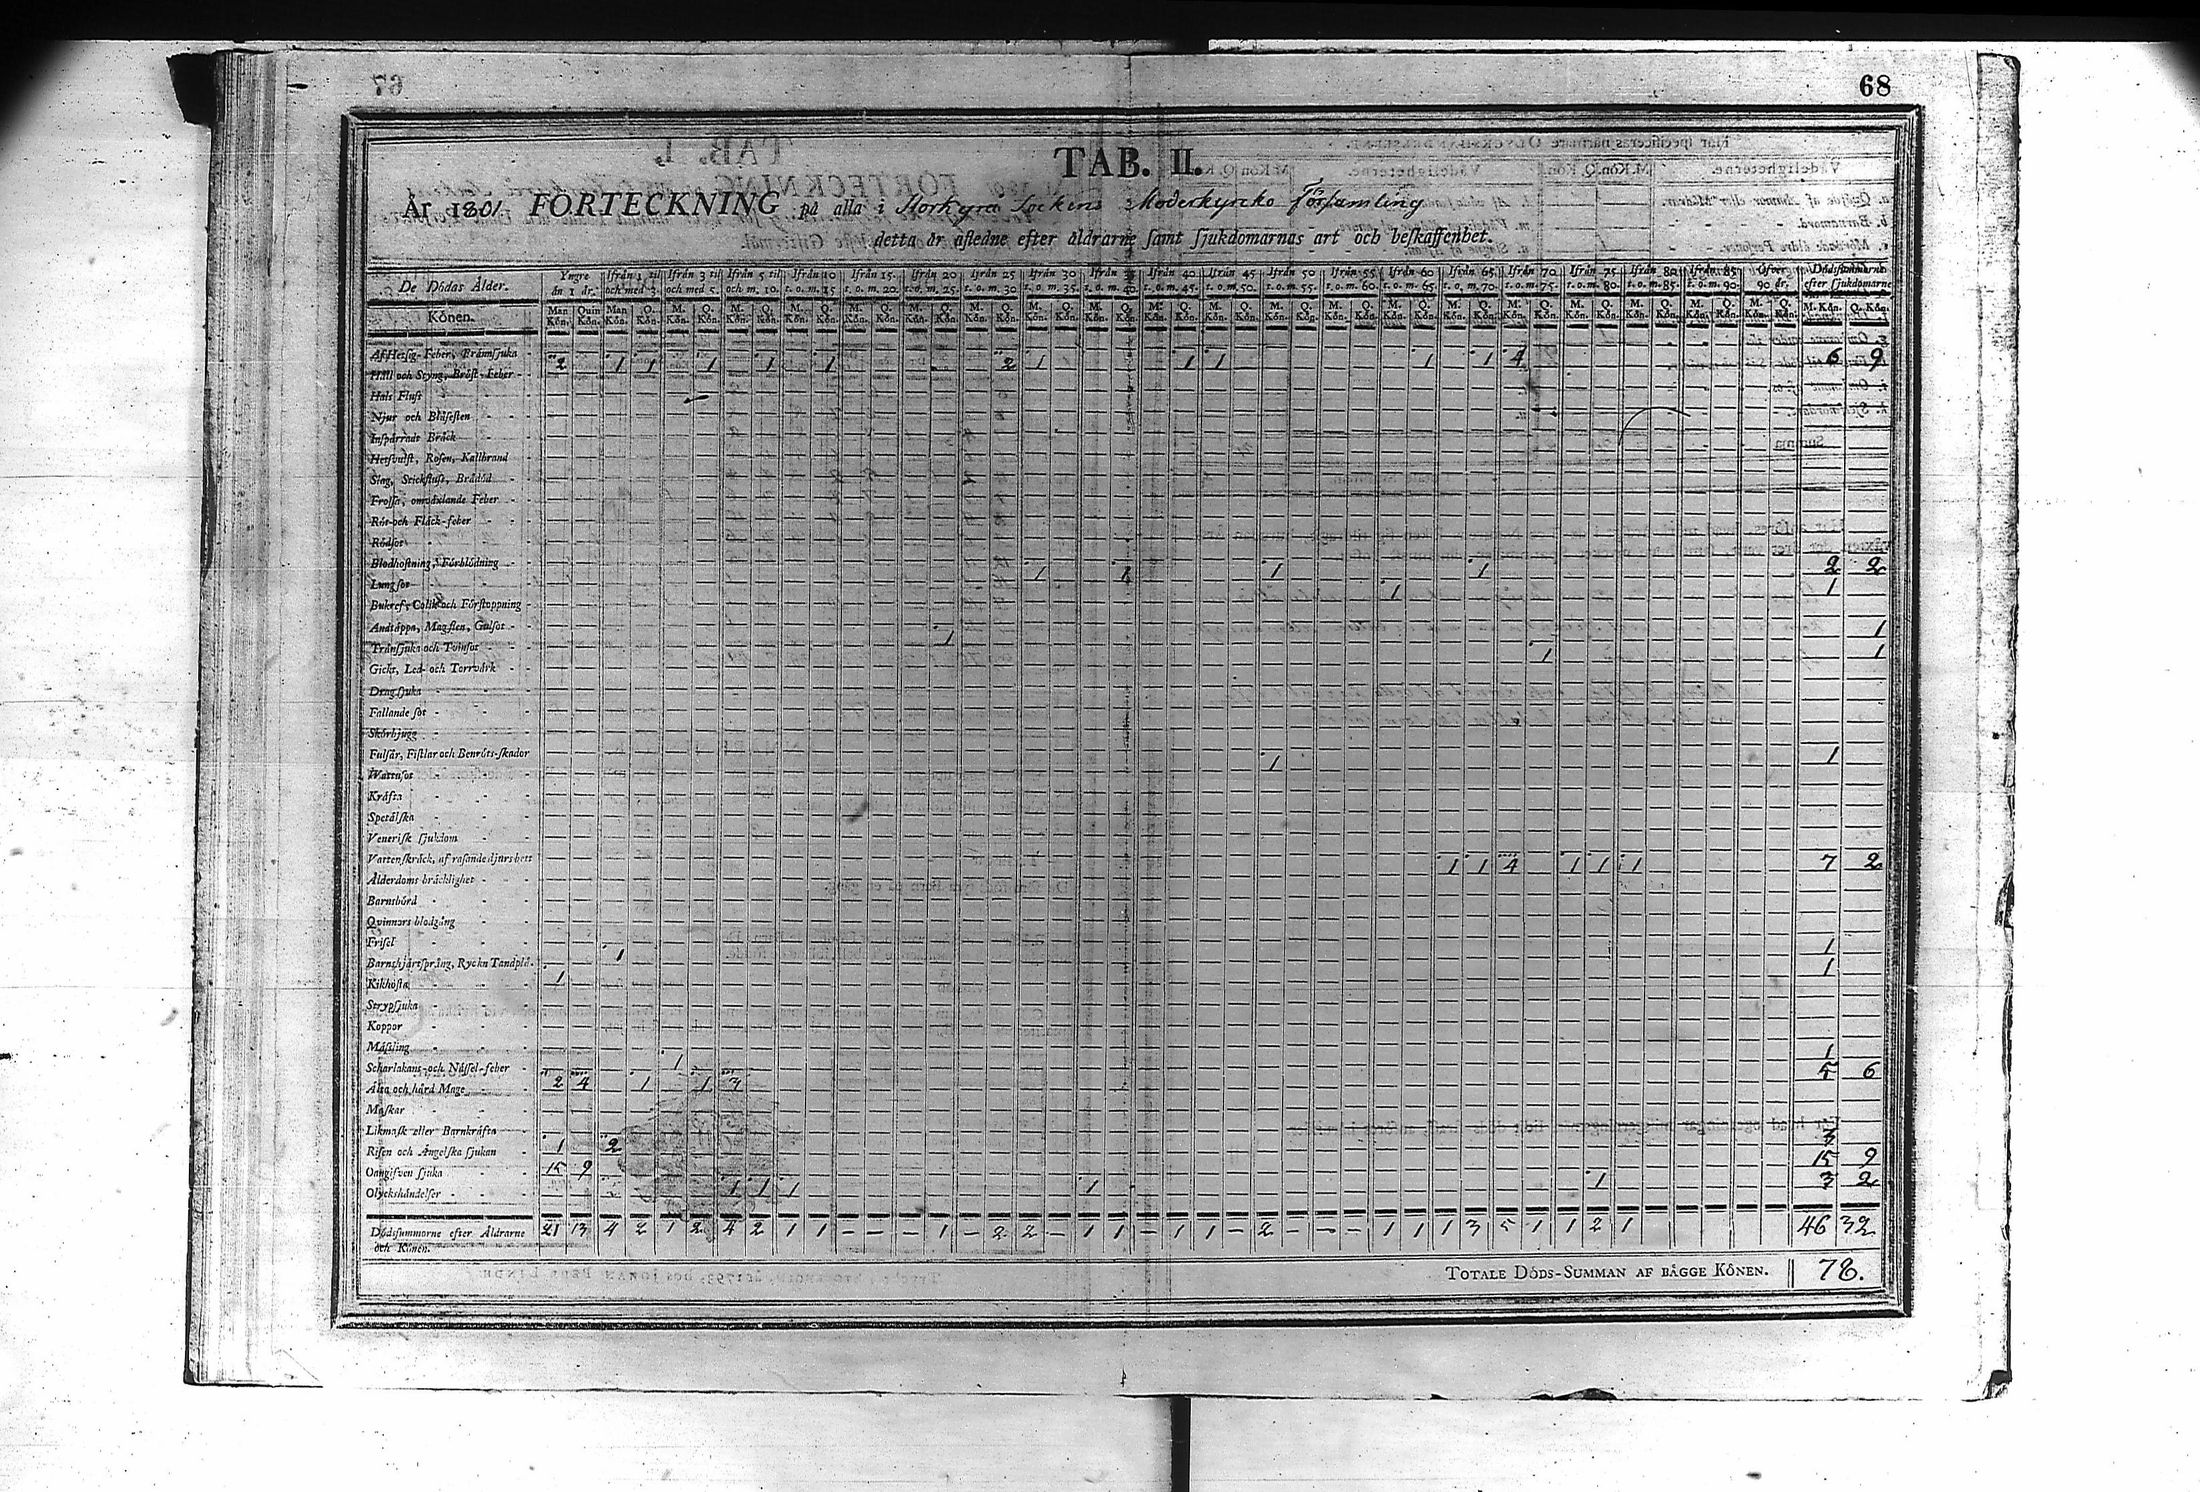 68
TAB. II.
År 1801. FÖRTECKNING på alla i Storkyro Sockens Moderkyrko Församling
detta år afledne efter åldrarne samt sjukdomarnas art och beskaffenhet.
De Dödas Ålder. Yngre än 1 år. Ifrån 1 til och med 3. Ifrån 3 til och med 5. Ifrån 5 til och m. 10. Ifrån 10 t. o. m. 15 Ifrån 15 t. o. m. 20. Ifrån 20 t. o. m. 25. Ifrån 25 t. o. m. 30 Ifrån 30 t. o. m. 35. Ifrån 35 t. o. m. 40. Ifrån 40 t. o. m. 45. Ifrån 45 t. o. m. 50. Ifrån 50 t. o. m. 55. Ifrån 55 t. o. m. 60. Ifrån 60 t. o. m. 65. Ifrån 65 t. o. m. 70. Ifrån 70 t. o. m. 75. Ifrån 75 t. o. m. 80. Ifrån 80 t. o. m. 85. Ifrån 85 t. o. m. 90. Öfver 90 år. Dödssummorne efter sjukdomarne
Könen. Man Kön. Quin Kön. Man Kön. Q. Kön. M. Kön. Q. Kön. M. Kön. Q. Kön. M. Kön. Q. Kön. M. Kön. Q. Kön. M. Kön. Q. Kön. M. Kön. Q. Kön. M. Kön. Q. Kön. M. Kön. Q. Kön. M. Kön. Q. Kön. M. Kön. Q. Kön. M. Kön. Q. Kön. M. Kön. Q. Kön. M. Kön. Q. Kön. M. Kön. Q. Kön. M. Kön. Q. Kön. M. Kön. Q. Kön. M. Kön. Q. Kön. M. Kön. Q. Kön. M. Kön. Q. Kön. M. Kön. Q. Kön.
Af Hetsig-Feber, Brännsjuka
Håll och Styng, Bröst-Feber 2 1 1 1 1 1 2 1 1 1 1 1 4 6 9
Hals Fluss
Njur och Blåsesten
Inspärradt Bråck
Hetsvulst, Rosen, Kallbrand
Slag, Stickfluss, Brådöd
Frossa, omväxlande Feber
Röt-och Fläck-feber
Rödsot
Blodhostning, Förblödning
Lungsot 1 1 1 1 2 2
Bukref, Colik och Förstoppning 1 1
Andtäppa, Magsten, Gulsot
Trånsjuka och Tvinsot 1 1
Gickt, Led- och Torrvärk 1 1
Dragsjuka
Fallande sot
Skörbjugg
Fulsår, Fistlar och Benröts-skador
Wattusot 1 1
Kräfta
Spetälska
Venerisk sjukdom
Vattenskräck, af rasande djurs bett
Ålderdoms bräcklighet 1 1 4 1 1 1 7 2
Barnsbörd
Qvinnors blodgång
Frisel
Barns hjärtsprång, Ryckn Tandplå. 1 1
Kikhosta 1 1
Strypsjuka
Koppor
Mässling
Scharlakans-och Nässel-feber 1 1
Älta och hård Mage 2 4 1 1 3 5 6
Maskar
Likmask eller Barnkräfta
Risen och Ängelska sjukan 1 2 3
Oangifven sjuka 15 9 15 9
Olyckshändelser 1 1 1 1 1 3 2
Dödssummorne efter Åldrarne och Könen. 21 13 4 2 1 2 4 2 1 1 — — — 1 — 2 2 — 1 1 — 1 1 — 2 — — — 1 1 1 3 5 1 1 2 1 46 32
TOTALE DÖDS-SUMMAN AF BÄGGE KÖNEN. 78.